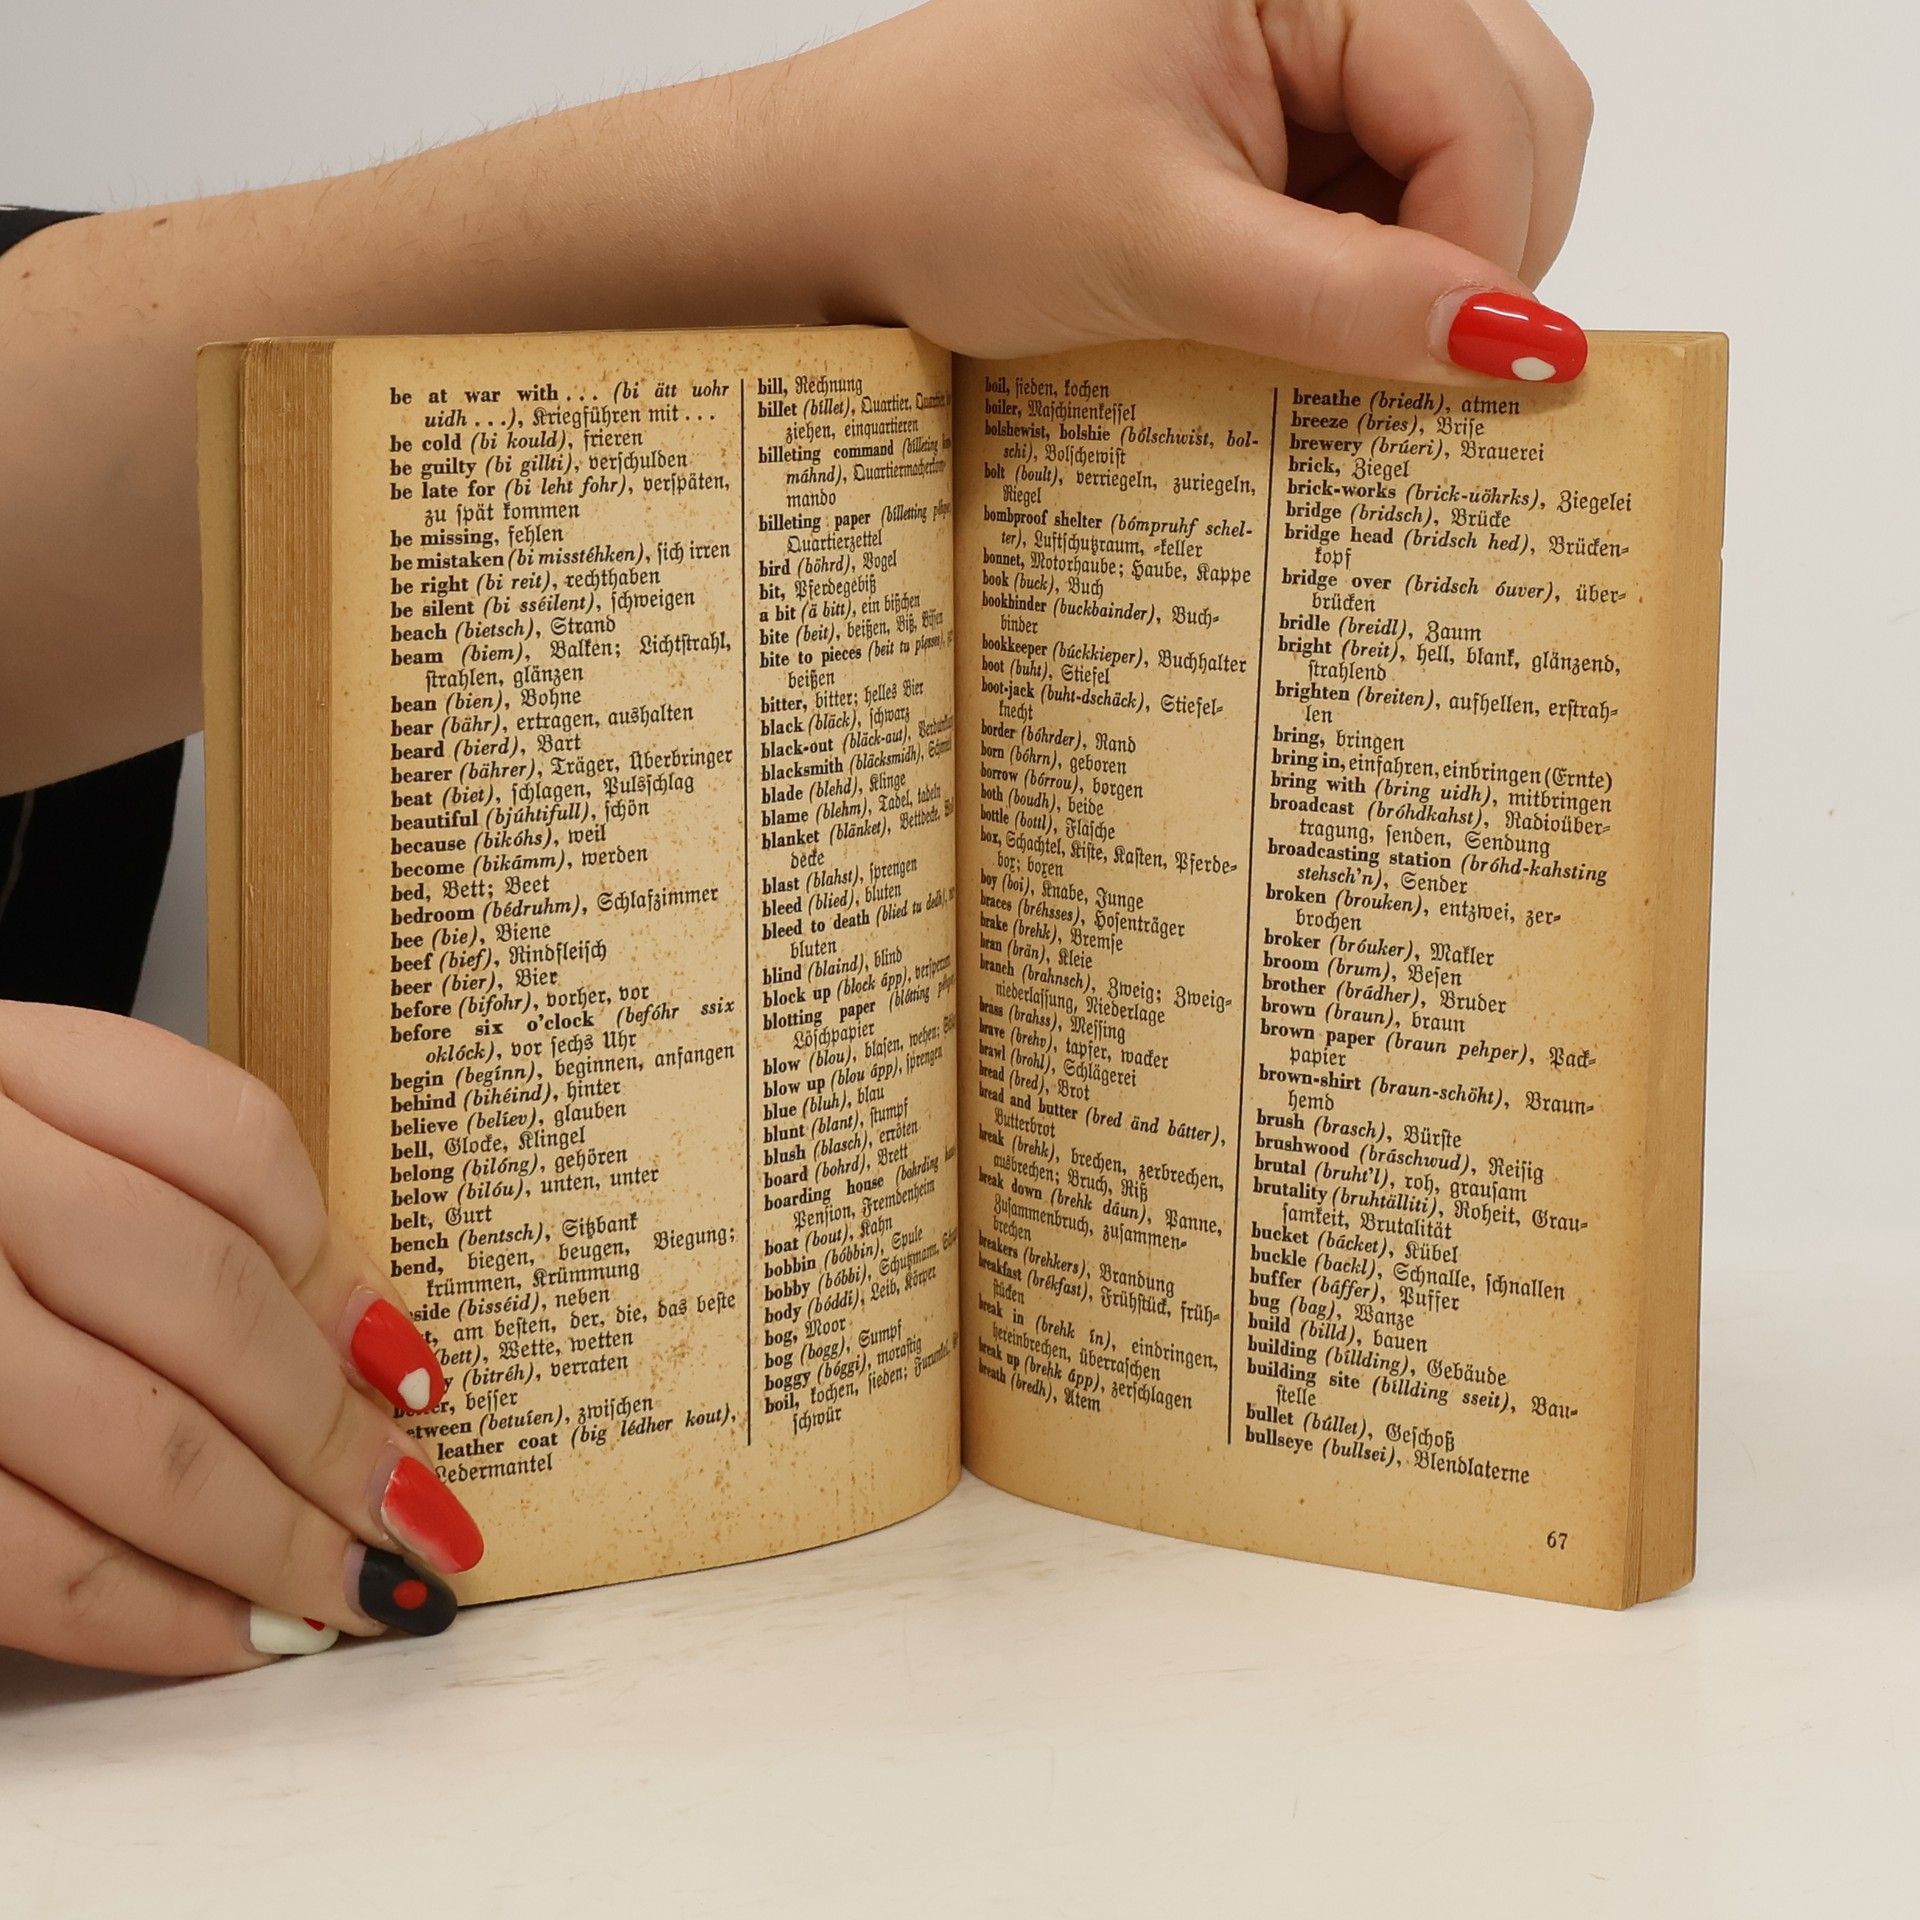 be at war with . . . (bi ätt uohr
uidh . . .), Kriegführen mit . . .
be cold (bi kould), frieren
be guilty (bi gillti), verschulden
be late for (bi leht fohr), verspäten,
zu spät kommen
be missing, fehlen
be mistaken (bi misstéhken), sich irren
be right (bi reit), rechthaben
be silent (bi sséilent), schweigen
beach (bietsch), Strand
beam (biem), Balken; Lichtstrahl,
strahlen, glänzen
bean (bien), Bohne
bear (bähr), ertragen, aushalten
beard (bierd), Bart
bearer (bährer), Träger, Überbringer
beat (biet), schlagen, Pulsschlag
beautiful (bjúhtifull), schön
because (bikóhs), weil
become (bikámm), werden
bed, Bett; Beet
bedroom (bédruhm), Schlafzimmer
bee (bie), Biene
beef (bief), Rindfleisch
beer (bier), Bier
before (bifohr), vorher, vor
before six o'clock (befóhr ssix
oklóck), vor sechs Uhr
begin (begínn), beginnen, anfangen
behind (bihéind), hinter
believe (belíev), glauben
bell, Glocke, Klingel
belong (bilóng), gehören
below (bilóu), unten, unter
belt, Gurt
bench (bentsch), Sitzbank
bend, biegen, beugen, Biegung;
krümmen, Krümmung
side (bisséid), neben
t, am besten, der, die, das beste
(bett), Wette, wetten
y (bitréh), verraten
er, besser
etween (betuíen), zwischen
leather coat (big lédher kout),
Ledermantel
bill, Rechnung
billet (bíllet), Quartier,
ziehen, einquartieren
billeting command (bílleting
máhnd), Quartiermacherkom-
mando
billeting paper (bílletting
Quartierzettel
bird (böhrd), Vogel
bit, Pferdegebiß
a bit (ä bitt), ein bißchen
bite (beit), beißen, Biß, Bissen
bite to pieces (beit tu
beißen
bitter, bitter; helles Bier
black (bläck), schwarz
black-out (bläck-aut),
blacksmith (bläcksmidh),
blade (blehd), Klinge
blame (blehm), Tadel, tadeln
blanket (blänket), Bettdecke,
decke
blast (blahst), sprengen
bleed (blied), bluten
bleed to death (blied tu dedh),
bluten
blind (blaind), blind
block up (block ápp), versperren
blotting paper (blótting
Löschpapier
blow (blou), blasen, wehen;
blow up (blou ápp), sprengen
blue (bluh), blau
blunt (blant), stumpf
blush (blasch), erröten
board (bohrd), Brett
boarding house (bohrding
Pension, Fremdenheim
boat (bout), Kahn
bobbin (bóbbin), Spule
bobby (bóbbi), Schutzmann,
body (bóddi), Leib, Körper
bog, Moor
bog (bogg), Sumpf
boggy (bóggi), morastig
boil, kochen, sieden;
schwür
boil, sieden, kochen
boiler, Maschinenkessel
bolshewist, bolshie (bólschwist, bol-
schi), Bolschewist
bolt (boult), verriegeln, zuriegeln,
Riegel
bombproof shelter (bómpruhf schel-
ter), Luftschutzraum, -keller
bonnet, Motorhaube; Haube, Kappe
book (buck), Buch
bookbinder (buckbainder), Buch-
binder
bookkeeper (búckkieper), Buchhalter
boot (buht), Stiefel
boot-jack (buht-dschäck), Stiefel-
knecht
border (bóhrder), Rand
born (bóhrn), geboren
borrow (bórrou), borgen
both (boudh), beide
bottle (bottl), Flasche
box, Schachtel, Kiste, Kasten, Pferde-
box; boxen
boy (boi), Knabe, Junge
braces (bréhsses), Hosenträger
brake (brehk), Bremse
bran (brän), Kleie
branch (brahnsch), Zweig; Zweig-
niederlassung, Niederlage
brass (brahss), Messing
brave (brehv), tapfer, wacker
brawl (brohl), Schlägerei
bread (bred), Brot
bread and butter (bred änd bátter),
Butterbrot
break (brehk), brechen, zerbrechen,
ausbrechen; Bruch, Riß
break down (brehk dáun), Panne,
Zusammenbruch, zusammen-
brechen
breakers (brehkers), Brandung
breakfast (brékfast), Frühstück, früh-
stücken
break in (brehk ín), eindringen,
hereinbrechen, überraschen
break up (brehk ápp), zerschlagen
breath (bredh), Atem
breathe (briedh), atmen
breeze (bries), Brise
brewery (brúeri), Brauerei
brick, Ziegel
brick-works (brick-uöhrks), Ziegelei
bridge (bridsch), Brücke
bridge head (bridsch hed), Brücken-
kopf
bridge over (bridsch óuver), über-
brücken
bridle (breidl), Zaum
bright (breit), hell, blank, glänzend,
strahlend
brighten (breiten), aufhellen, erstrah-
len
bring, bringen
bring in, einfahren, einbringen (Ernte)
bring with (bring uidh), mitbringen
broadcast (bróhdkahst), Radioüber-
tragung, senden, Sendung
broadcasting station (bróhd-kahsting
stehsch'n), Sender
broken (brouken), entzwei, zer-
brochen
broker (bróuker), Makler
broom (brum), Besen
brother (brádher), Bruder
brown (braun), braun
brown paper (braun pehper), Pack-
papier
brown-shirt (braun-schöht), Braun-
hemd
brush (brasch), Bürste
brushwood (bráschwud), Reisig
brutal (bruht'l), roh, grausam
brutality (bruhtälliti), Roheit, Grau-
samkeit, Brutalität
bucket (bácket), Kübel
buckle (backl), Schnalle, schnallen
buffer (báffer), Puffer
bug (bag), Wanze
build (billd), bauen
building (bíllding), Gebäude
building site (bíllding sseit), Bau-
stelle
bullet (búllet), Geschoß
bullseye (bullsei), Blendlaterne
67